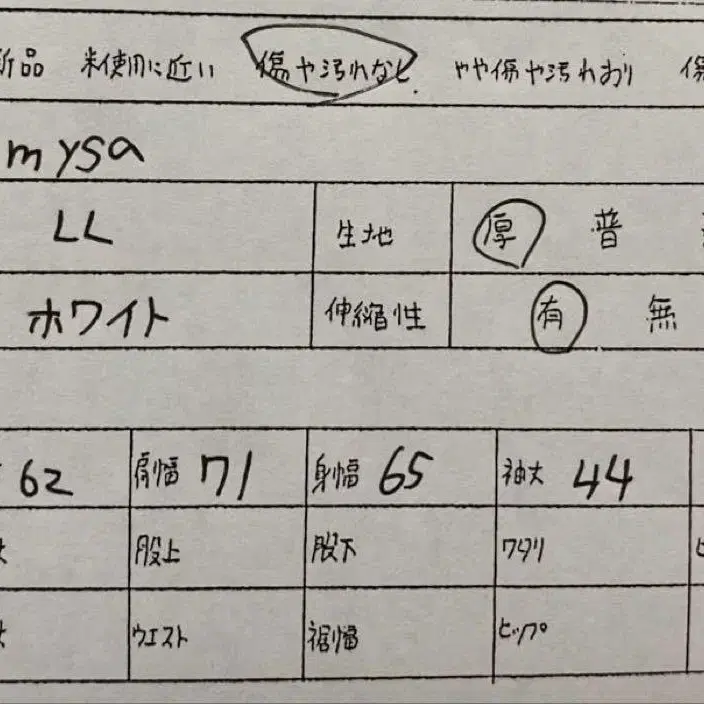 新品 未使用に近い 傷や汚れなし やや傷や汚れあり 傷
mysa
LL 生地 厚 普
ホワイト 伸縮性 有 無
62 肩幅 71 身幅 65 袖丈 44
股上 股下 ワタリ
ウエスト 裾幅 ヒップ